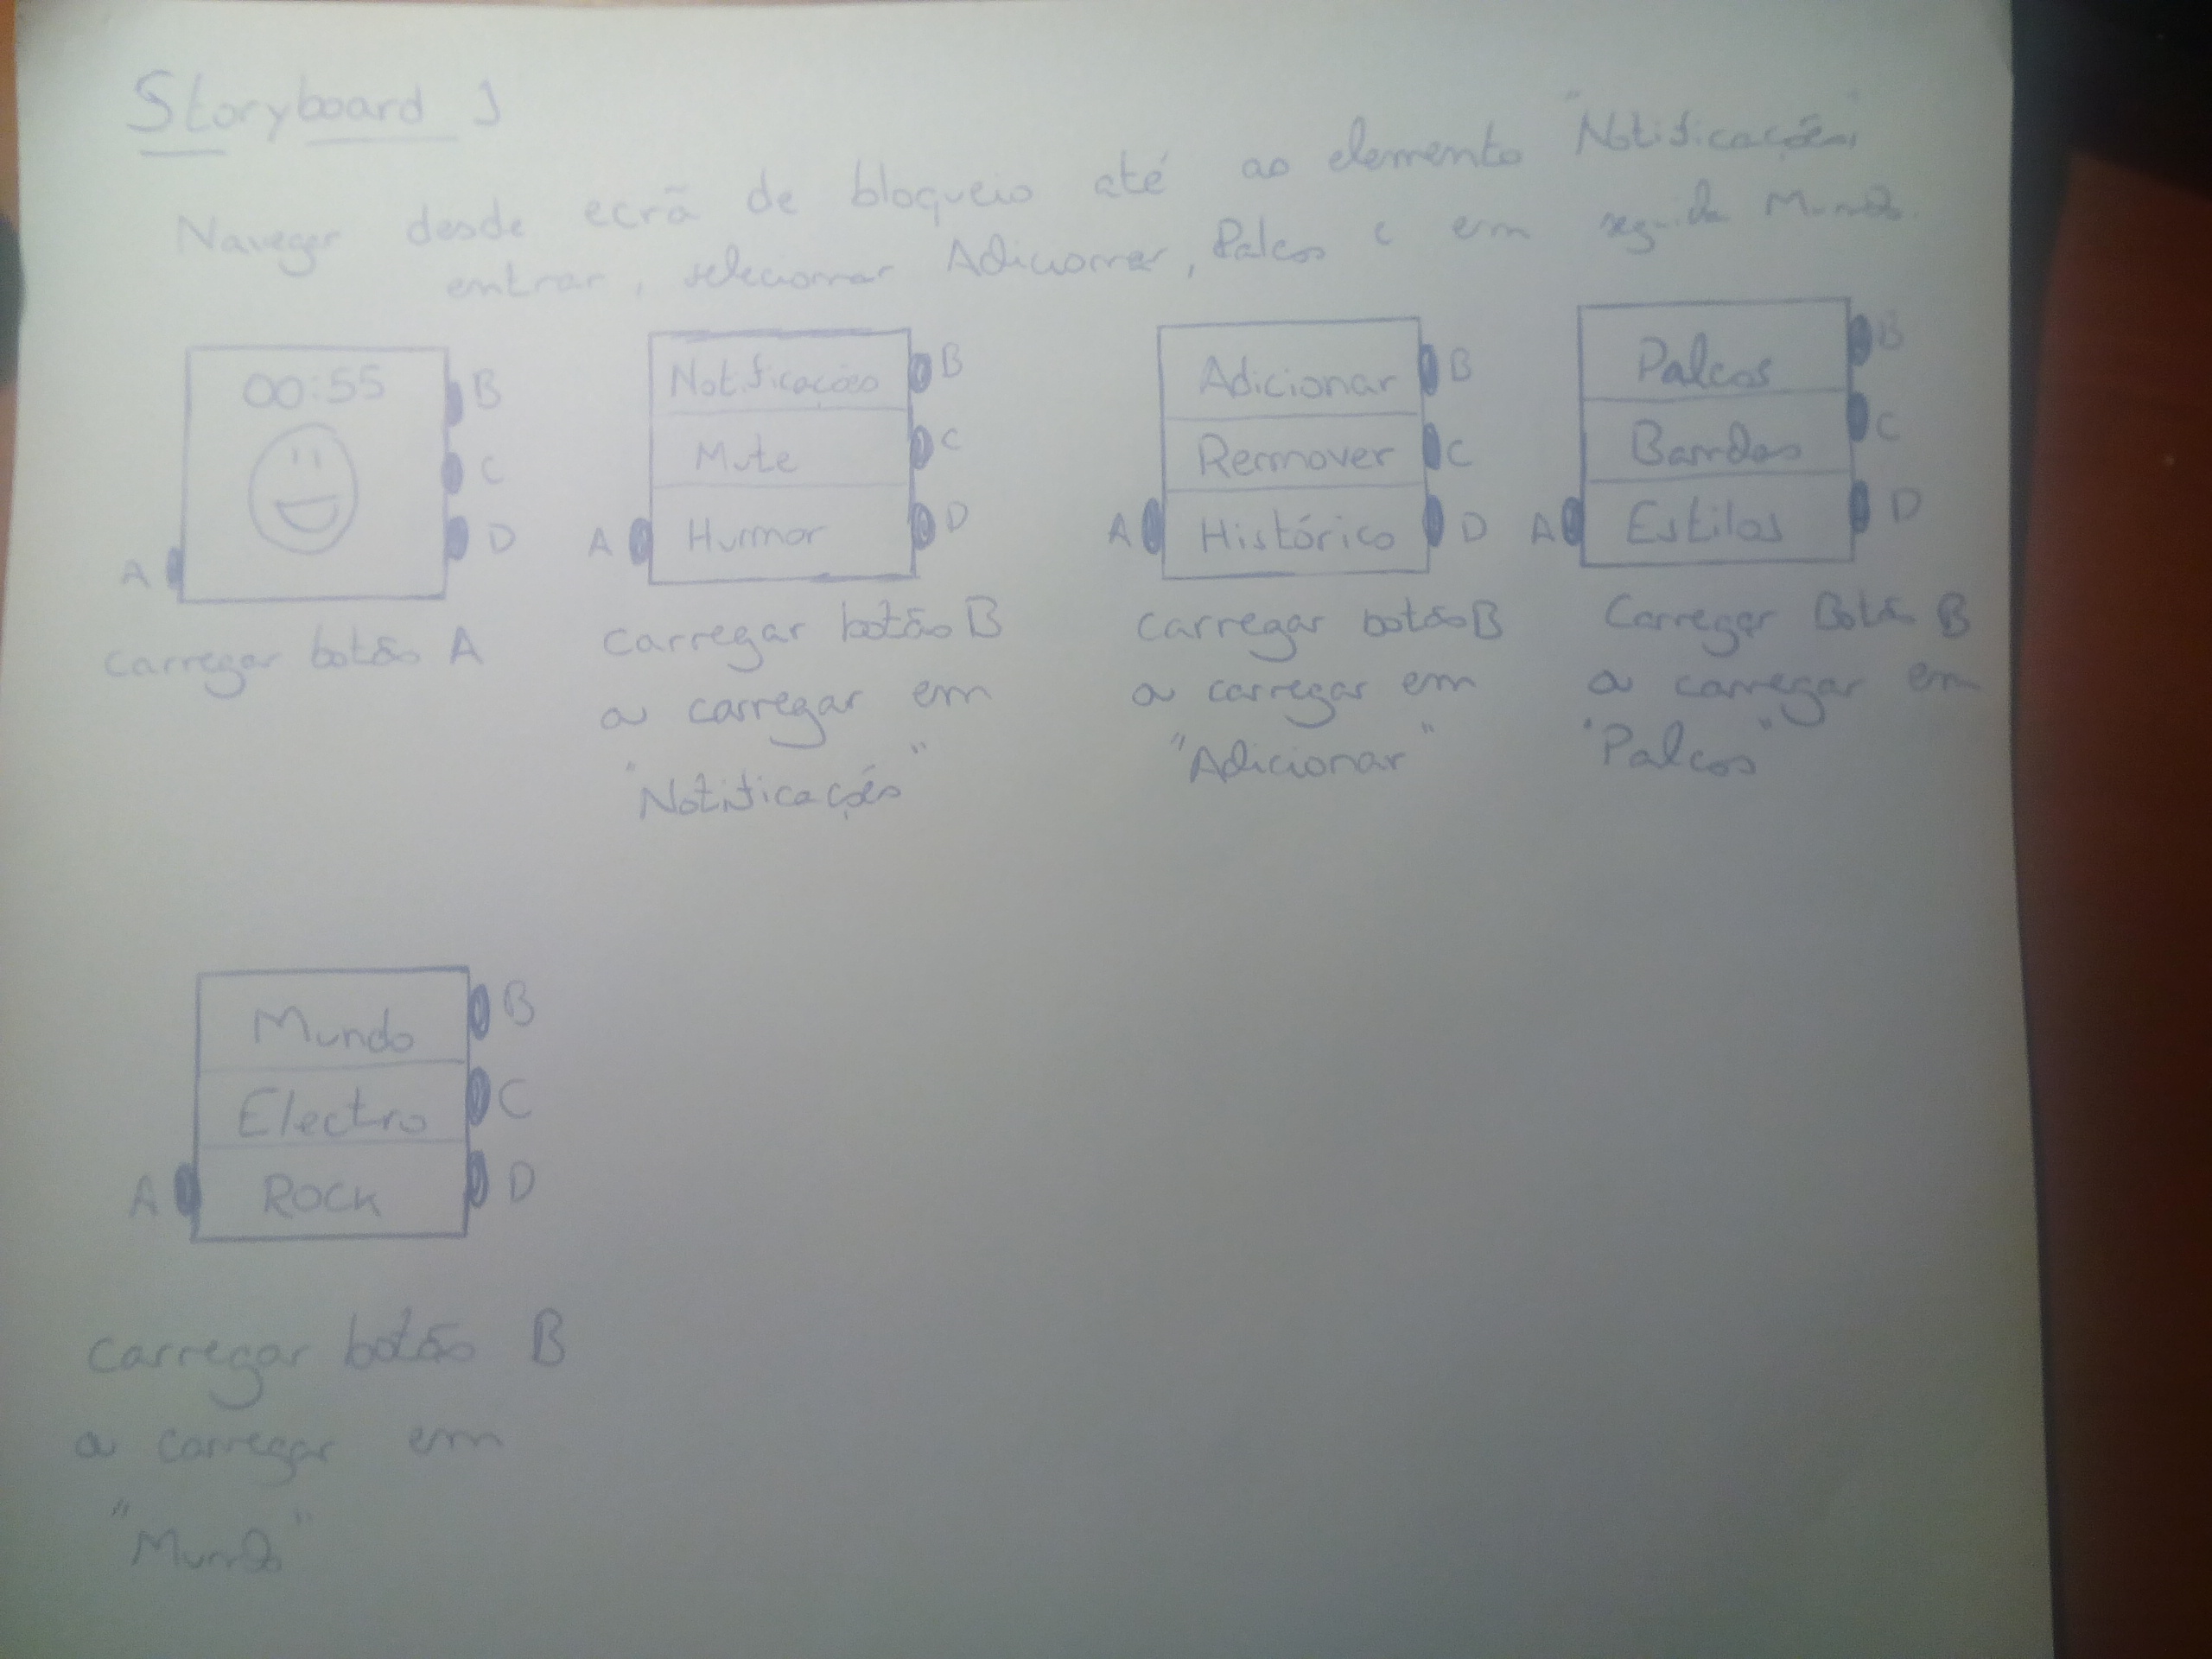 Storyboard 1
Navegar desde ecrã de bloqueio até ao elemento "Notificações"
entrar, selecionar Adicionar, Palcos e em seguida Mundo.
00:55
B
C
D
A
Carregar botão A
Notificações
Mute
Humor
B
C
D
A
Carregar botão B
a carregar em
"Notificações"
Adicionar
Remover
Histórico
B
C
D
A
Carregar botão B
a carregar em
"Adicionar"
Palcos
Bandas
Estilos
B
C
D
A
Carregar Botão B
a carregar em
"Palcos"
Mundo
Electro
Rock
B
C
D
A
Carregar botão B
a carregar em
"Mundo"